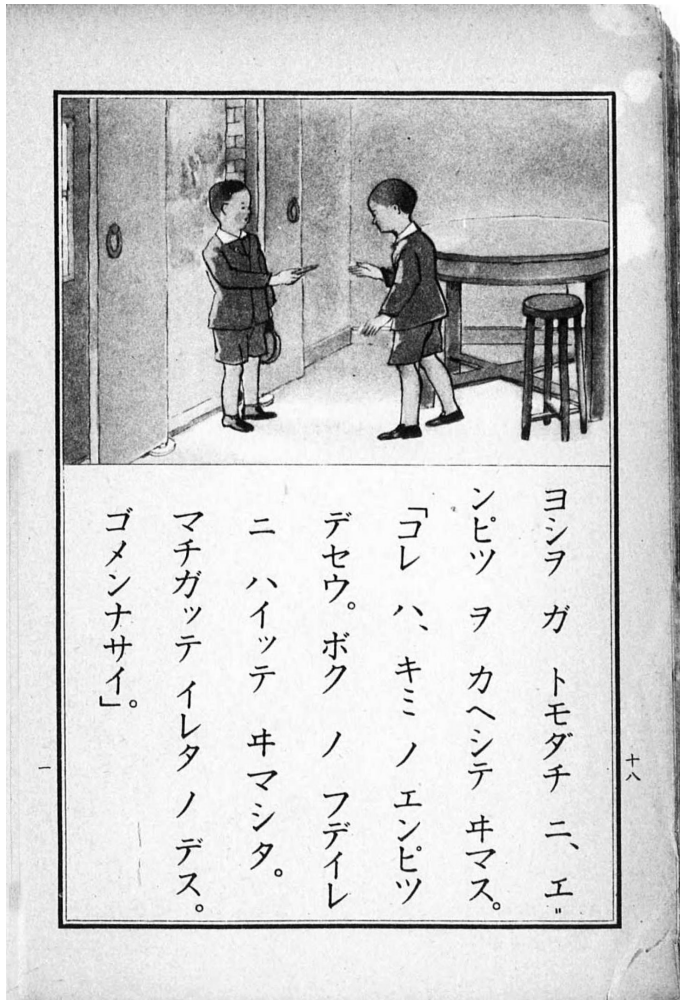 ヨシヲ ガ トモダチ ニ、エ
ンピツ ヲ カヘシテ ヰマス。
「コレ ハ、キミ ノ エンピツ
デセウ。ボク ノ フデイレ
ニ ハイッテ ヰマシタ。
マチガッテ イレタ ノ デス。
ゴメンナサイ」。
十八
一